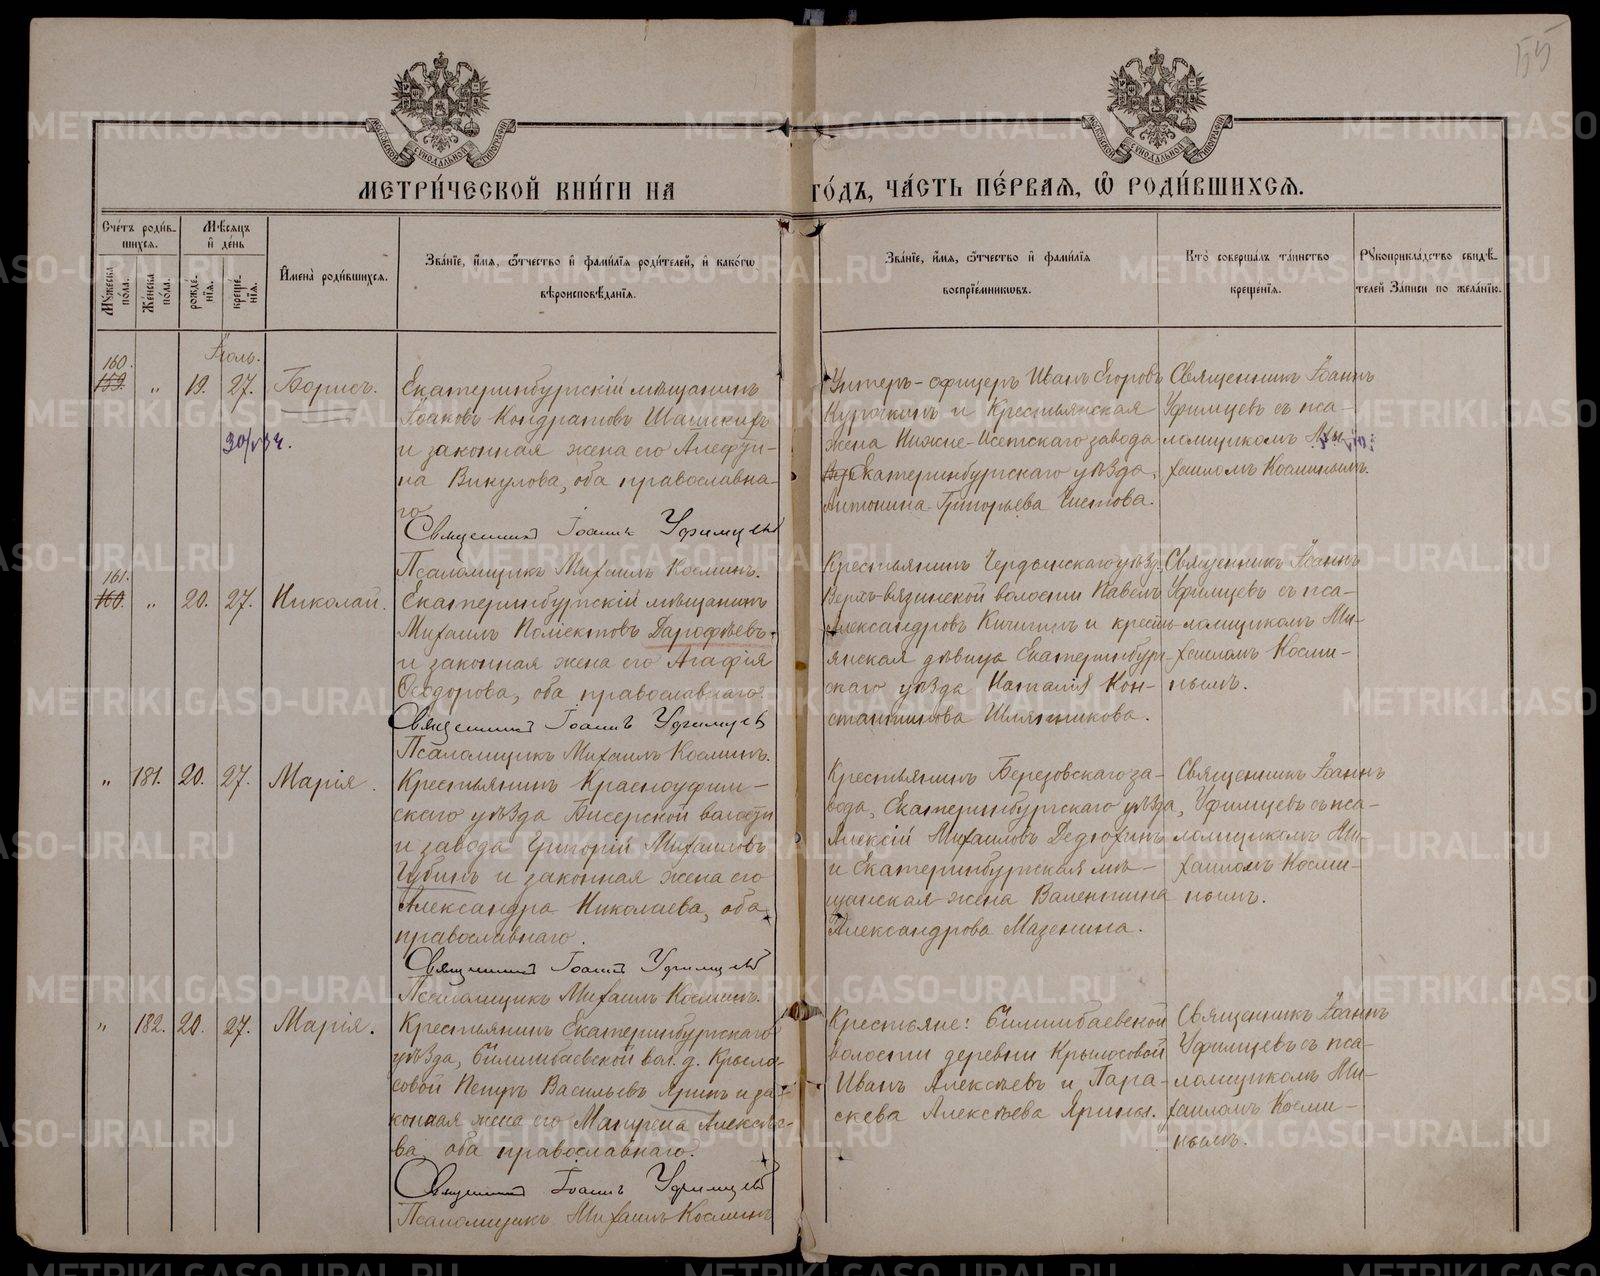 55
МЕТРИ́ЧЕСКОЙ КНИ́ГИ НА ГО́ДЪ, ЧА́СТЬ ПЕ́РВАѦ, Ѿ РОДИ́ВШИХСѦ.
Сче́тъ роди́в-
шихсѧ.
Мꙋжеска по́ла.
Же́нска по́ла.
Мѣ́сѧцъ и де́нь
рожде́нїѧ.
креще́нїѧ.
Имена̀ роди́вшихсѧ.
Зва́нїе, и́мѧ, ѻ́тчество и фами́лїѧ роди́телей, и како́гѡ
вѣроисповѣ́данїѧ.
Зва́нїе, и́мѧ, ѻ́тчество и фами́лїѧ
воспрїе́мникѡвъ.
Кто̀ соверша́лъ та́инство
креще́нїѧ.
Рꙋкоприкла́дство свидѣ́-
телей За́писи по жела́нїю.
Іюль.
160.
159. " 19. 27. Борисъ.
30/V 34.
Екатеринбургскій мѣщанинъ
Іоаковъ Кондратовъ Шашкинъ
и законная жена его Алефти-
на Викулова, оба православна-
го.
Священникъ Іоаннъ Уфимцевъ
Псаломщикъ Михаилъ Косминъ.
Унтеръ-офицеръ Иванъ Егоровъ
Курочкинъ и Крестьянская
жена Нижне-Исетскаго завода
Екатеринбургскаго уѣзда,
Антонина Григорьева Чистова.
Священникъ Іоаннъ
Уфимцевъ съ пса-
ломщикомъ Ми-
хаиломъ Косминымъ.
161.
160. " 20. 27. Николай.
Екатеринбургскій мѣщанинъ
Михаилъ Поліектовъ Дарофѣевъ
и законная жена его Агафія
Ѳеодорова, оба православнаго.
Священникъ Іоаннъ Уфимцевъ
Псаломщикъ Михаилъ Косминъ.
Крестьянинъ Чердынскаго уѣзда
Верхъ-язвинской волости Павелъ
Александровъ Кичигинъ и кресть-
янская дѣвица Екатеринбург-
скаго уѣзда Наталія Кон-
стантинова Шляпникова.
Священникъ Іоаннъ
Уфимцевъ съ пса-
ломщикомъ Ми-
хаиломъ Косми-
нымъ.
" 181. 20. 27. Марія.
Крестьянинъ Красноуфим-
скаго уѣзда Бисерской волости
и завода Григорій Михаиловъ
Губинъ и законная жена его
Александра Николаева, оба
православнаго.
Священникъ Іоаннъ Уфимцевъ
Псаломщикъ Михаилъ Косминъ.
Крестьянинъ Березовскаго за-
вода, Екатеринбургскаго уѣзда,
Алексій Михаиловъ Дедюхинъ
и Екатеринбургская мѣ-
щанская жена Валентина
Александрова Мазенина.
Священникъ Іоаннъ
Уфимцевъ съ пса-
ломщикомъ Ми-
хаиломъ Косми-
нымъ.
" 182. 20. 27. Марія.
Крестьянинъ Екатеринбургскаго
уѣзда, Билимбаевской вол. д. Крыло-
совой Петръ Васильевъ Яринъ и за-
конная жена его Матрена Алексѣе-
ва, оба православнаго.
Священникъ Іоаннъ Уфимцевъ
Псаломщикъ Михаилъ Косминъ
Крестьяне: Билимбаевской
волости деревни Крылосовой
Иванъ Алексѣевъ и Пара-
скева Алексѣева Ярины.
Священникъ Іоаннъ
Уфимцевъ съ пса-
ломщикомъ Ми-
хаиломъ Косми-
нымъ.
METRIKI.GASO-URAL.RU